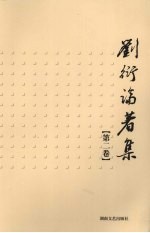 劉衍論著集
【第二卷】
湖南文艺出版社